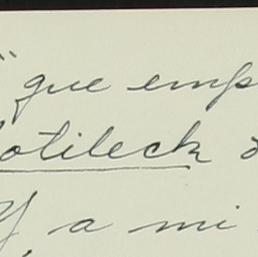 " que emp
otileck
Y, a mi